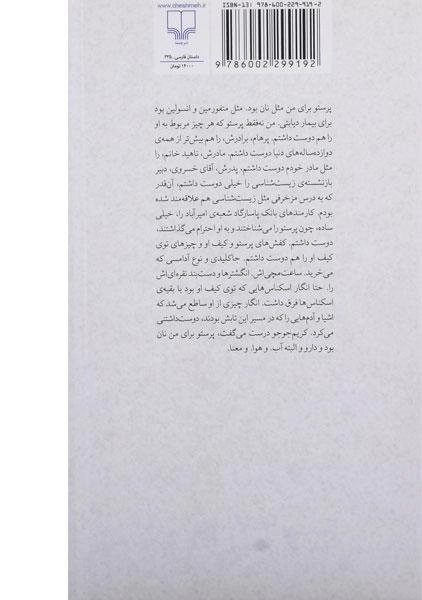 www.cheshmeh.ir
نشرچشمه
داستان فارسی، ۲۳۵
۱۶۰۰۰ تومان
ISBN-13: 978-600-229-919-2
9 786002 299192
پرستو برای من مثل نان بود. مثل متفورمین و انسولین بود
برای بیمار دیابتی. من نه‌فقط پرستو که هر چیز مربوط به او
را هم دوست داشتم. پرهام، برادرش، را هم بیش‌تر از همه‌ی
دوازده‌ساله‌های دنیا دوست داشتم. مادرش، ناهید خانم، را
مثل مادر خودم دوست داشتم. پدرش، آقای خسروی، دبیر
بازنشسته‌ی زیست‌شناسی را خیلی دوست داشتم، آن‌قدر
که به درس مزخرفی مثل زیست‌شناسی هم علاقه‌مند شده
بودم. کارمندهای بانک پاسارگاد شعبه‌ی امیرآباد را، خیلی
ساده، چون پرستو را می‌شناختند و به او احترام می‌گذاشتند،
دوست داشتم. کفش‌های پرستو و کیف او و چیزهای توی
کیف او را هم دوست داشتم. جاکلیدی و نوع آدامسی که
می‌خرید. ساعت‌مچی‌اش. انگشترها و دست‌بند نقره‌ای‌اش
را. حتا انگار اسکناس‌هایی که توی کیف او بود با بقیه‌ی
اسکناس‌ها فرق داشت. انگار چیزی از او ساطع می‌شد که
اشیا و آدم‌هایی را که در مسیر این تابش بودند، دوست‌داشتنی
می‌کرد. کریم‌جوجو درست می‌گفت، پرستو برای من نان
بود و دارو و البته آب. و هوا. و معنا.